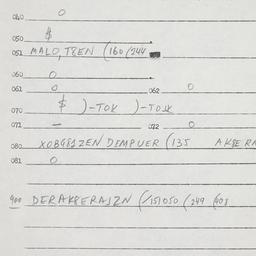 040 O
050 $
051 MALO, TSEN (160/244
060 O
061 O 062 O
070 $ )-TOK )-TOJK
071 — 072 O
080 XOBG8SZEN DEMPUER (135 AKSERA
081 O
900 DERAKPERAJZN (/151050 (249